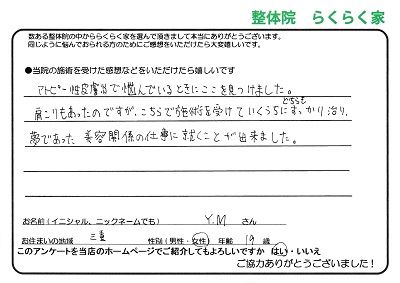 整体院 らくらく家
数ある整体院の中かららくらく家を選んで頂きまして本当にありがとうございます。
同じように悩んでおられる方のためにご感想をいただけたら大変嬉しいです。
●当院の施術を受けた感想などをいただけたら嬉しいです
アトピー性皮膚炎で悩んでいるときにここを見つけました。
どちらも
肩こりもあったのですが、こちらで施術を受けていくうちにすっかり治り、
夢であった 美容関係の仕事に就くことが出来ました。
お名前(イニシャル、ニックネームでも) Y.M さん
お住まいの地域 三重 性別(男性・女性) 年齢 19 歳
このアンケートを当店のホームページでご紹介してもよろしいですか はい・いいえ
ご協力ありがとうございました!